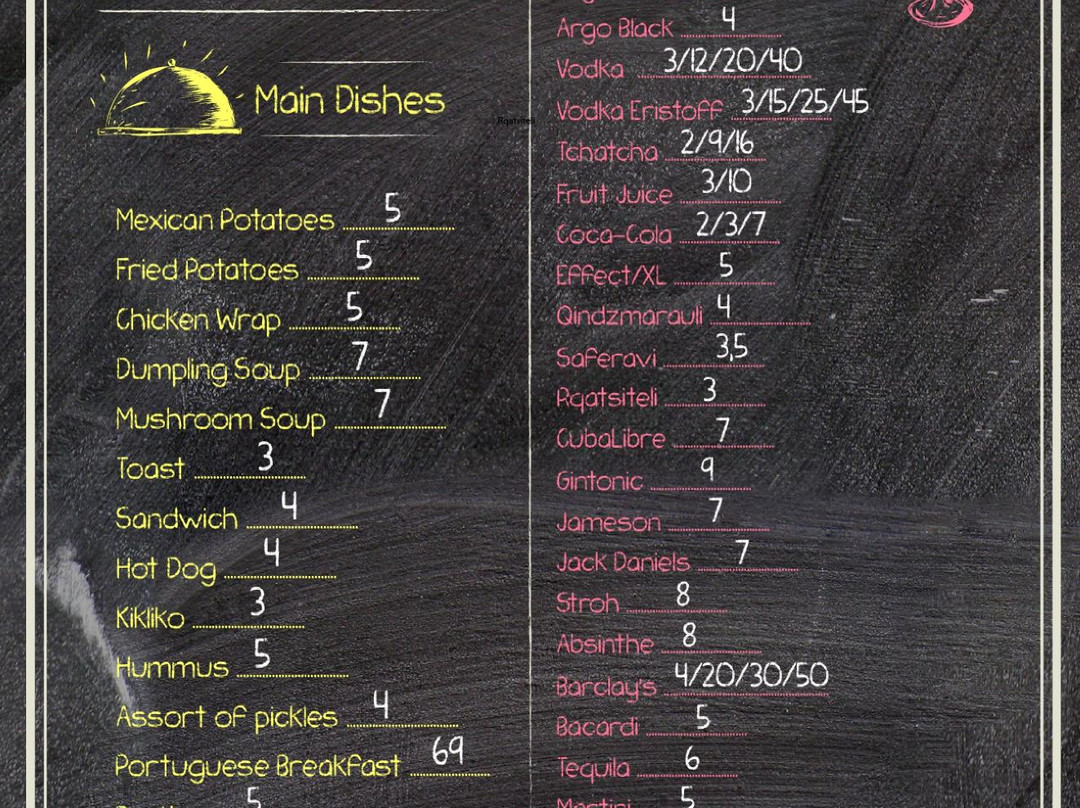 Main Dishes
Mexican Potatoes 5
Fried Potatoes 5
Chicken Wrap 5
Dumpling Soup 7
Mushroom Soup 7
Toast 3
Sandwich 4
Hot Dog 4
Kikliko 3
Hummus 5
Assort of pickles 4
Portuguese Breakfast 69
5
Rqatsiteli
Argo Black 4
Vodka 3/12/20/40
Vodka Eristoff 3/15/25/45
Tchatcha 2/9/16
Fruit Juice 3/10
Coca-Cola 2/3/7
Effect/XL 5
Qindzmarauli 4
Saferavi 3,5
Rqatsiteli 3
CubaLibre 7
Gintonic 9
Jameson 7
Jack Daniels 7
Stroh 8
Absinthe 8
Barclay's 4/20/30/50
Bacardi 5
Tequila 6
Martini 5